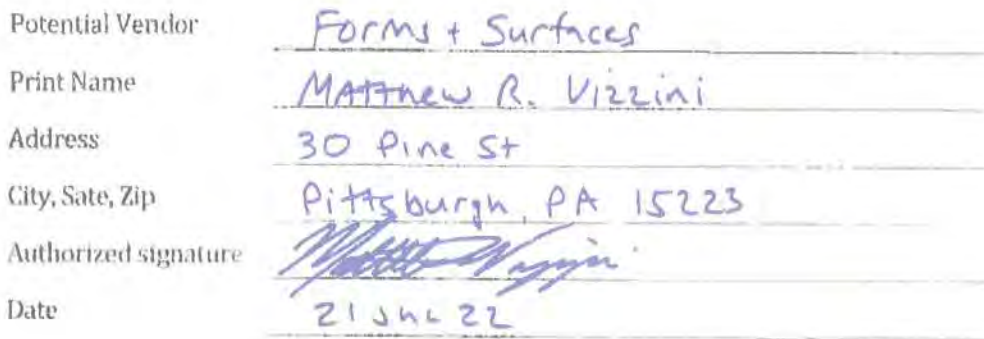 Potential Vendor Forms + Surfaces
Print Name Matthew R. Vizzini
Address 30 Pine St
City, Sate, Zip Pittsburgh, PA 15223
Authorized signature
Date 21 22